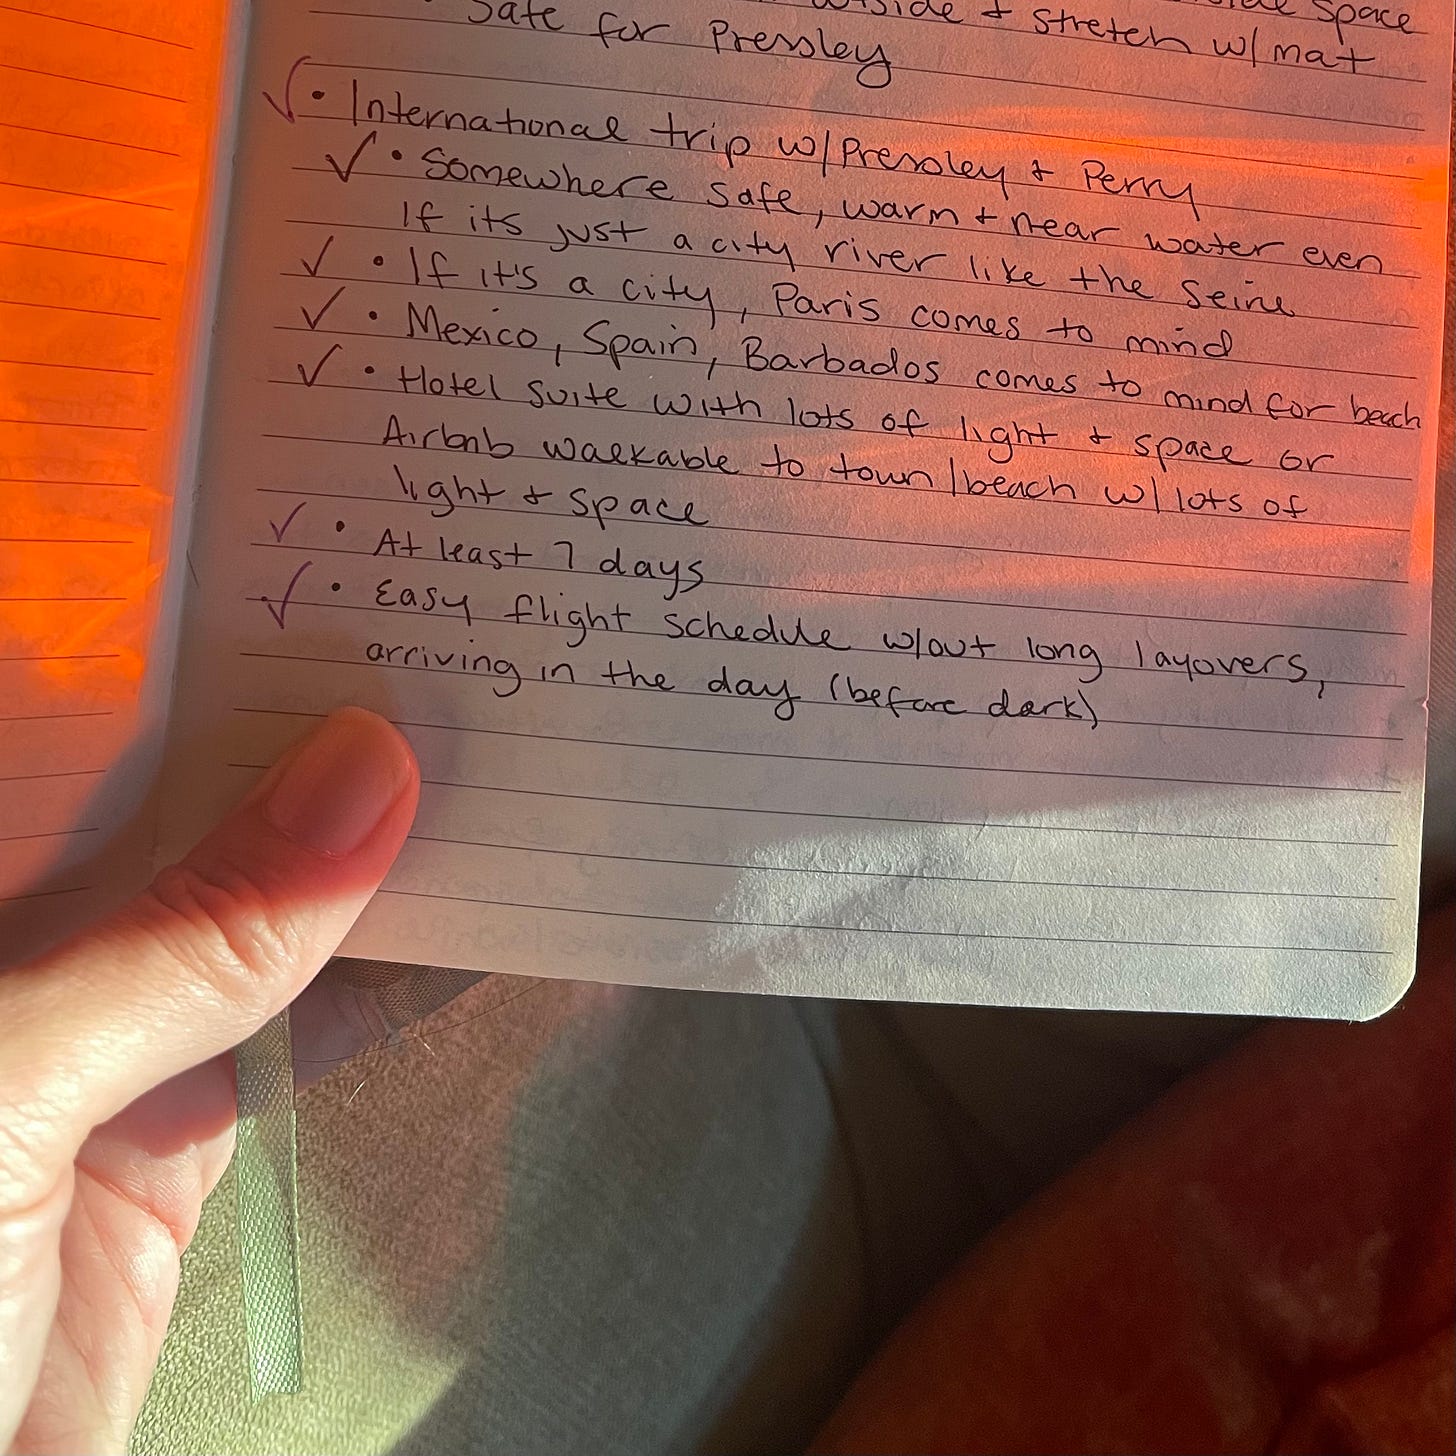 space
Safe for Pressley outside + stretch w/ mat
✓ • International trip w/Pressley + Perry
✓ • Somewhere safe, warm + near water even
If its just a city river like the Seine
✓ • If it's a city, Paris comes to mind
✓ • Mexico, Spain, Barbados comes to mind for beach
✓ • Hotel suite with lots of light + space or
Airbnb walkable to town/beach w/ lots of
light + space
✓ • At least 7 days
✓ • Easy flight schedule w/out long layovers,
arriving in the day (before dark)